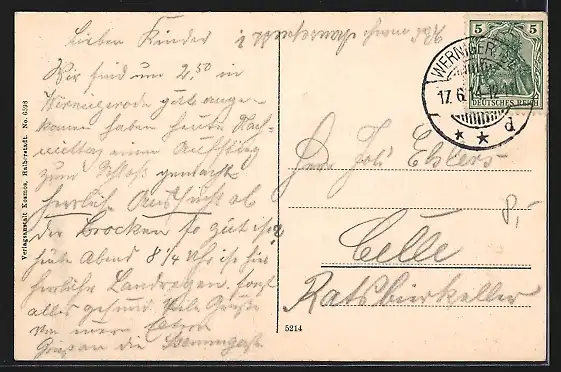 Lieben Kinder!
Wir sind um 2,50 in
Wernigerode gut ange-
komen haben heute Nach-
mittag einen Ausflug
zum Schloß gemacht
herrlich Aussicht ob
der Brocken so gut ist
heute Abend 8 1/4 Uhr ist hier
herrliche Landregen. sonst
alles gesund. Viele Grüße
von euren Eltern
Gruß an die
Verlagsanstalt Kosmos, Halberstadt. No. 6598
5 5
DEUTSCHES REICH
WERNIGERODE
17.6.14.12-1
* * d
Herrn Joh Ehlers
Celle
Ratskeller
8,-
5214